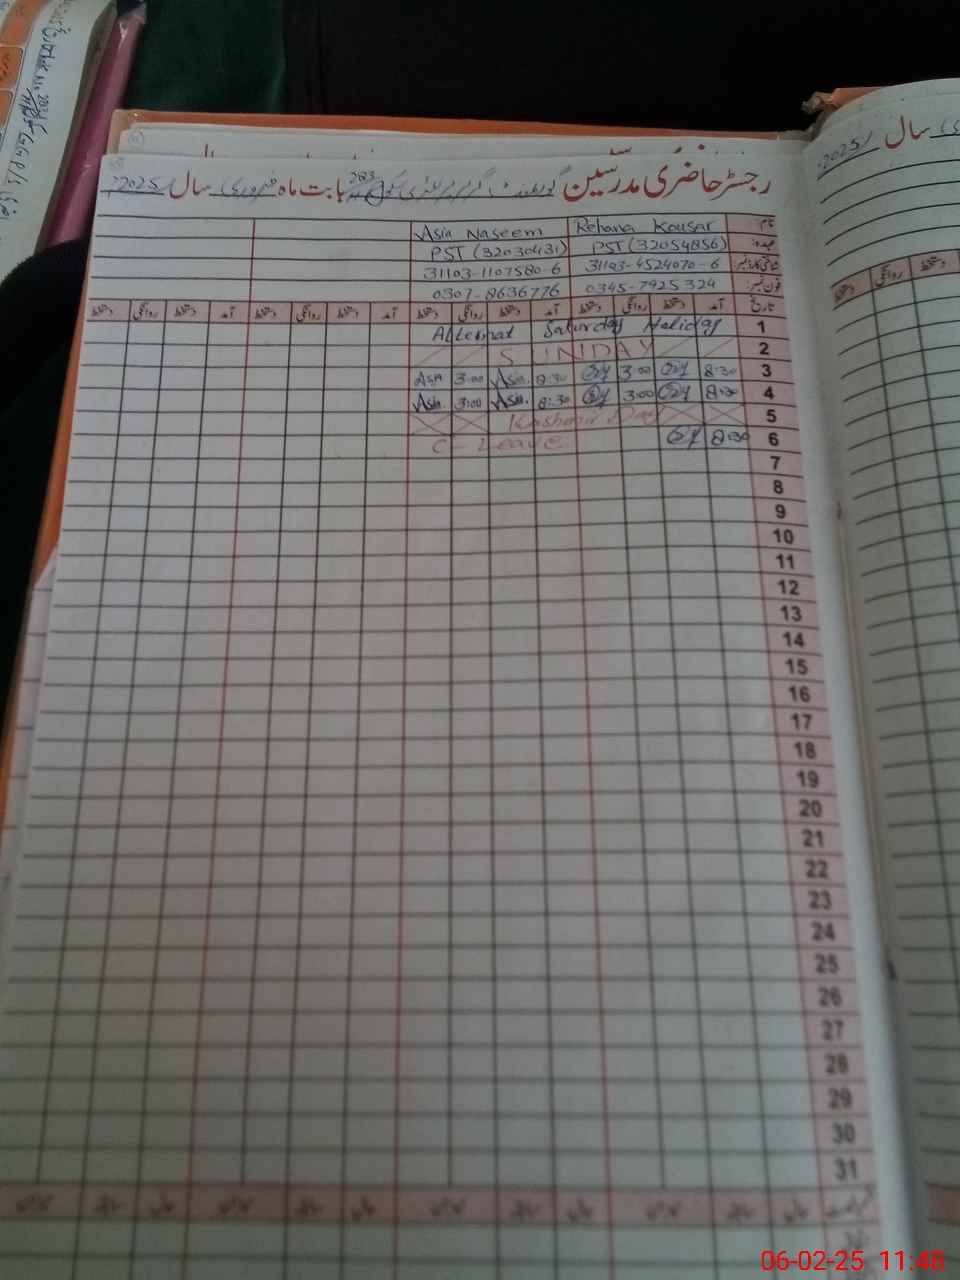 رجسٹر حاضری مدرسین گورنمنٹ گرلز پرائمری سکول 283 بابت ماہ فروری سال 2025ء
سال 2025ء
نام Rehana Kousar Asia Naseem
عہدہ PST (32054856) PST (32030431)
شناختی کارڈ نمبر 31103-4524070-6 31103-1107580-6
فون نمبر 0345-7925324 0307-8636776
تاریخ آمد دستخط روانگی دستخط آمد دستخط روانگی دستخط آمد دستخط روانگی دستخط آمد دستخط روانگی دستخط
1 Alternat Saturday Holiday
2 SUNDAY
3 8:30 3:00 8:30 Asia 3:00 Asia
4 8:30 3:00 8:30 Asia 3:00 Asia
5 Kashmir Day
6 8:30 C-Leave
7
8
9
10
11
12
13
14
15
16
17
18
19
20
21
22
23
24
25
26
27
28
29
30
31
06-02-25 11:48